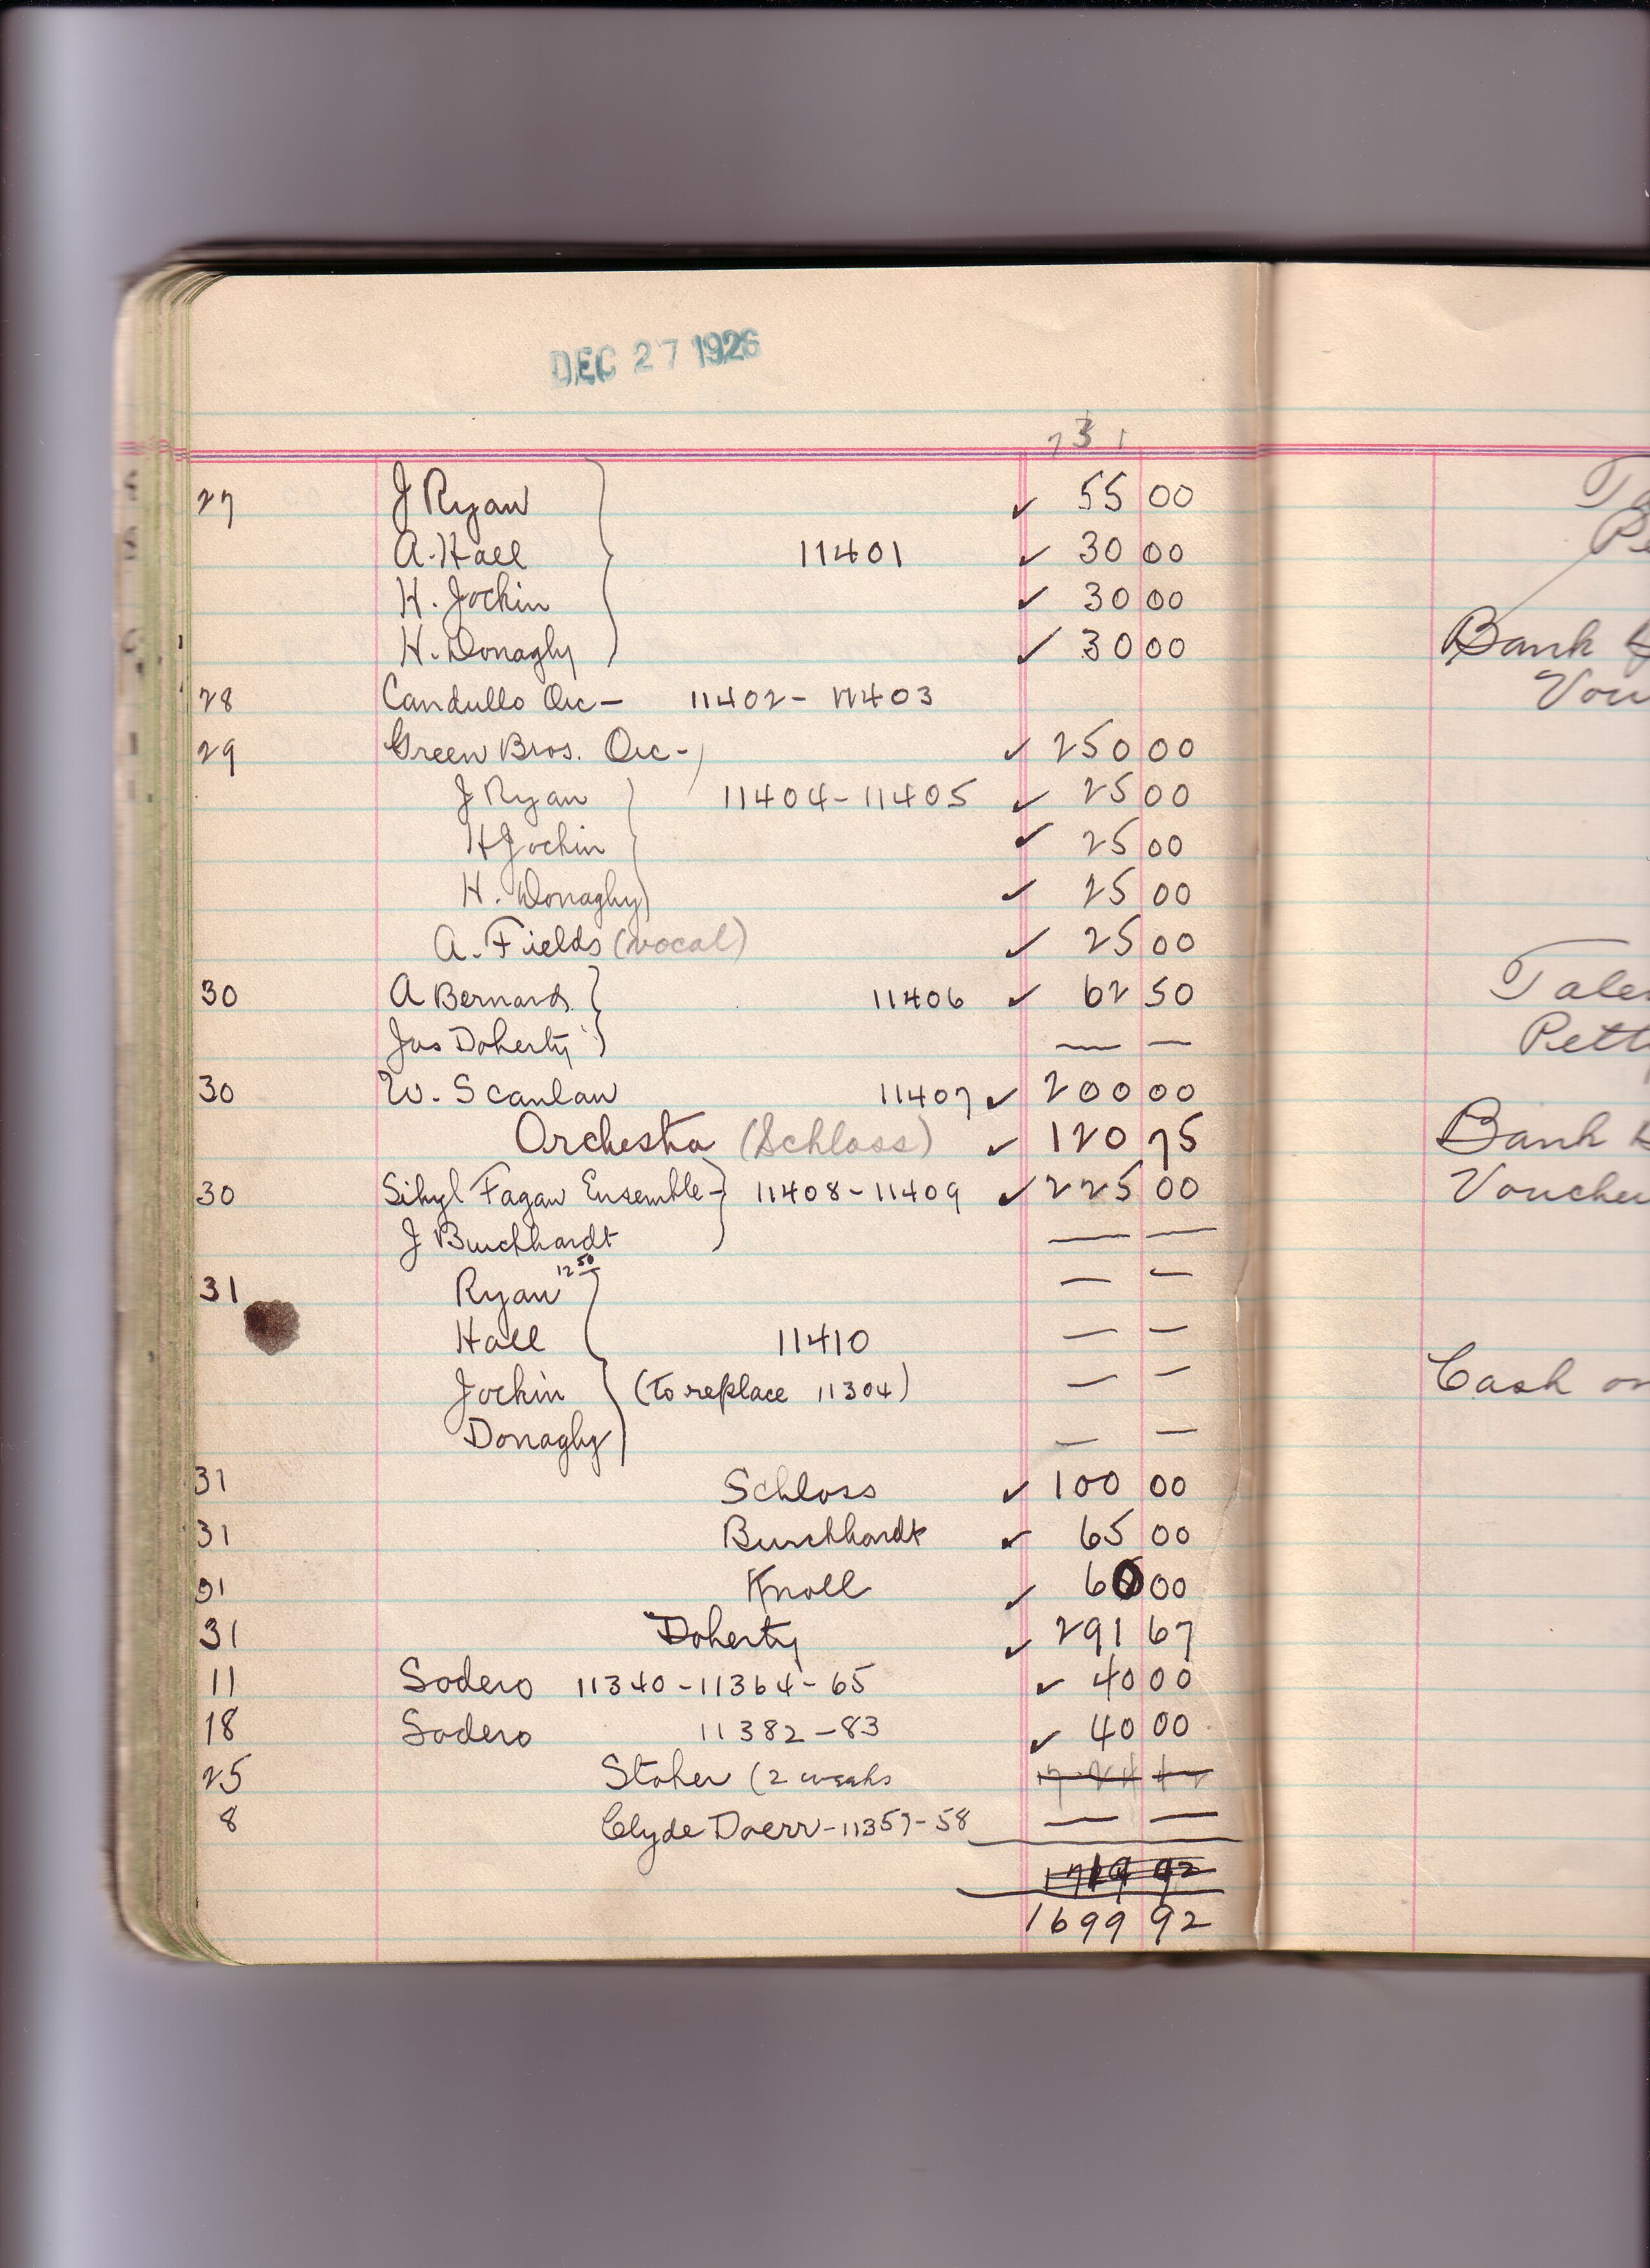 DEC 27 1926
231
27 J Ryan ✓ 55 00
A. Hall 11401 ✓ 30 00
H. Jockin ✓ 30 00
H. Donaghy ✓ 30 00
28 Candullo Orc— 11402 - 11403
29 Green Bros. Orc- ✓ 250 00
J Ryan 11404-11405 ✓ 25 00
H Jockin ✓ 25 00
H. Donaghy ✓ 25 00
A. Fields (vocal) ✓ 25 00
30 A Bernard 11406 ✓ 62 50
Jas Doherty — —
30 W. Scanlan 11407 ✓ 200 00
Orchestra (Schloss) ✓ 120 75
30 Sibyl Fagan Ensemble- 11408-11409 ✓ 225 00
J Burchhardt — —
31 Ryan 12 50 — —
Hall 11410 — —
Jockin (to replace 11304) — —
Donaghy — —
31 Schloss ✓ 100 00
31 Burchhardt ✓ 65 00
31 Knoll ✓ 60 00
31 Doherty ✓ 291 67
11 Sodero 11340-11364-65 ✓ 40 00
18 Sodero 11382-83 ✓ 40 00
25 Stoher (2 weeks
8 Clyde Doerr-11357-58 — —
1719 92
1699 92
Bank
Vou
Tales
Pett
Bank
Voucher
Cash on